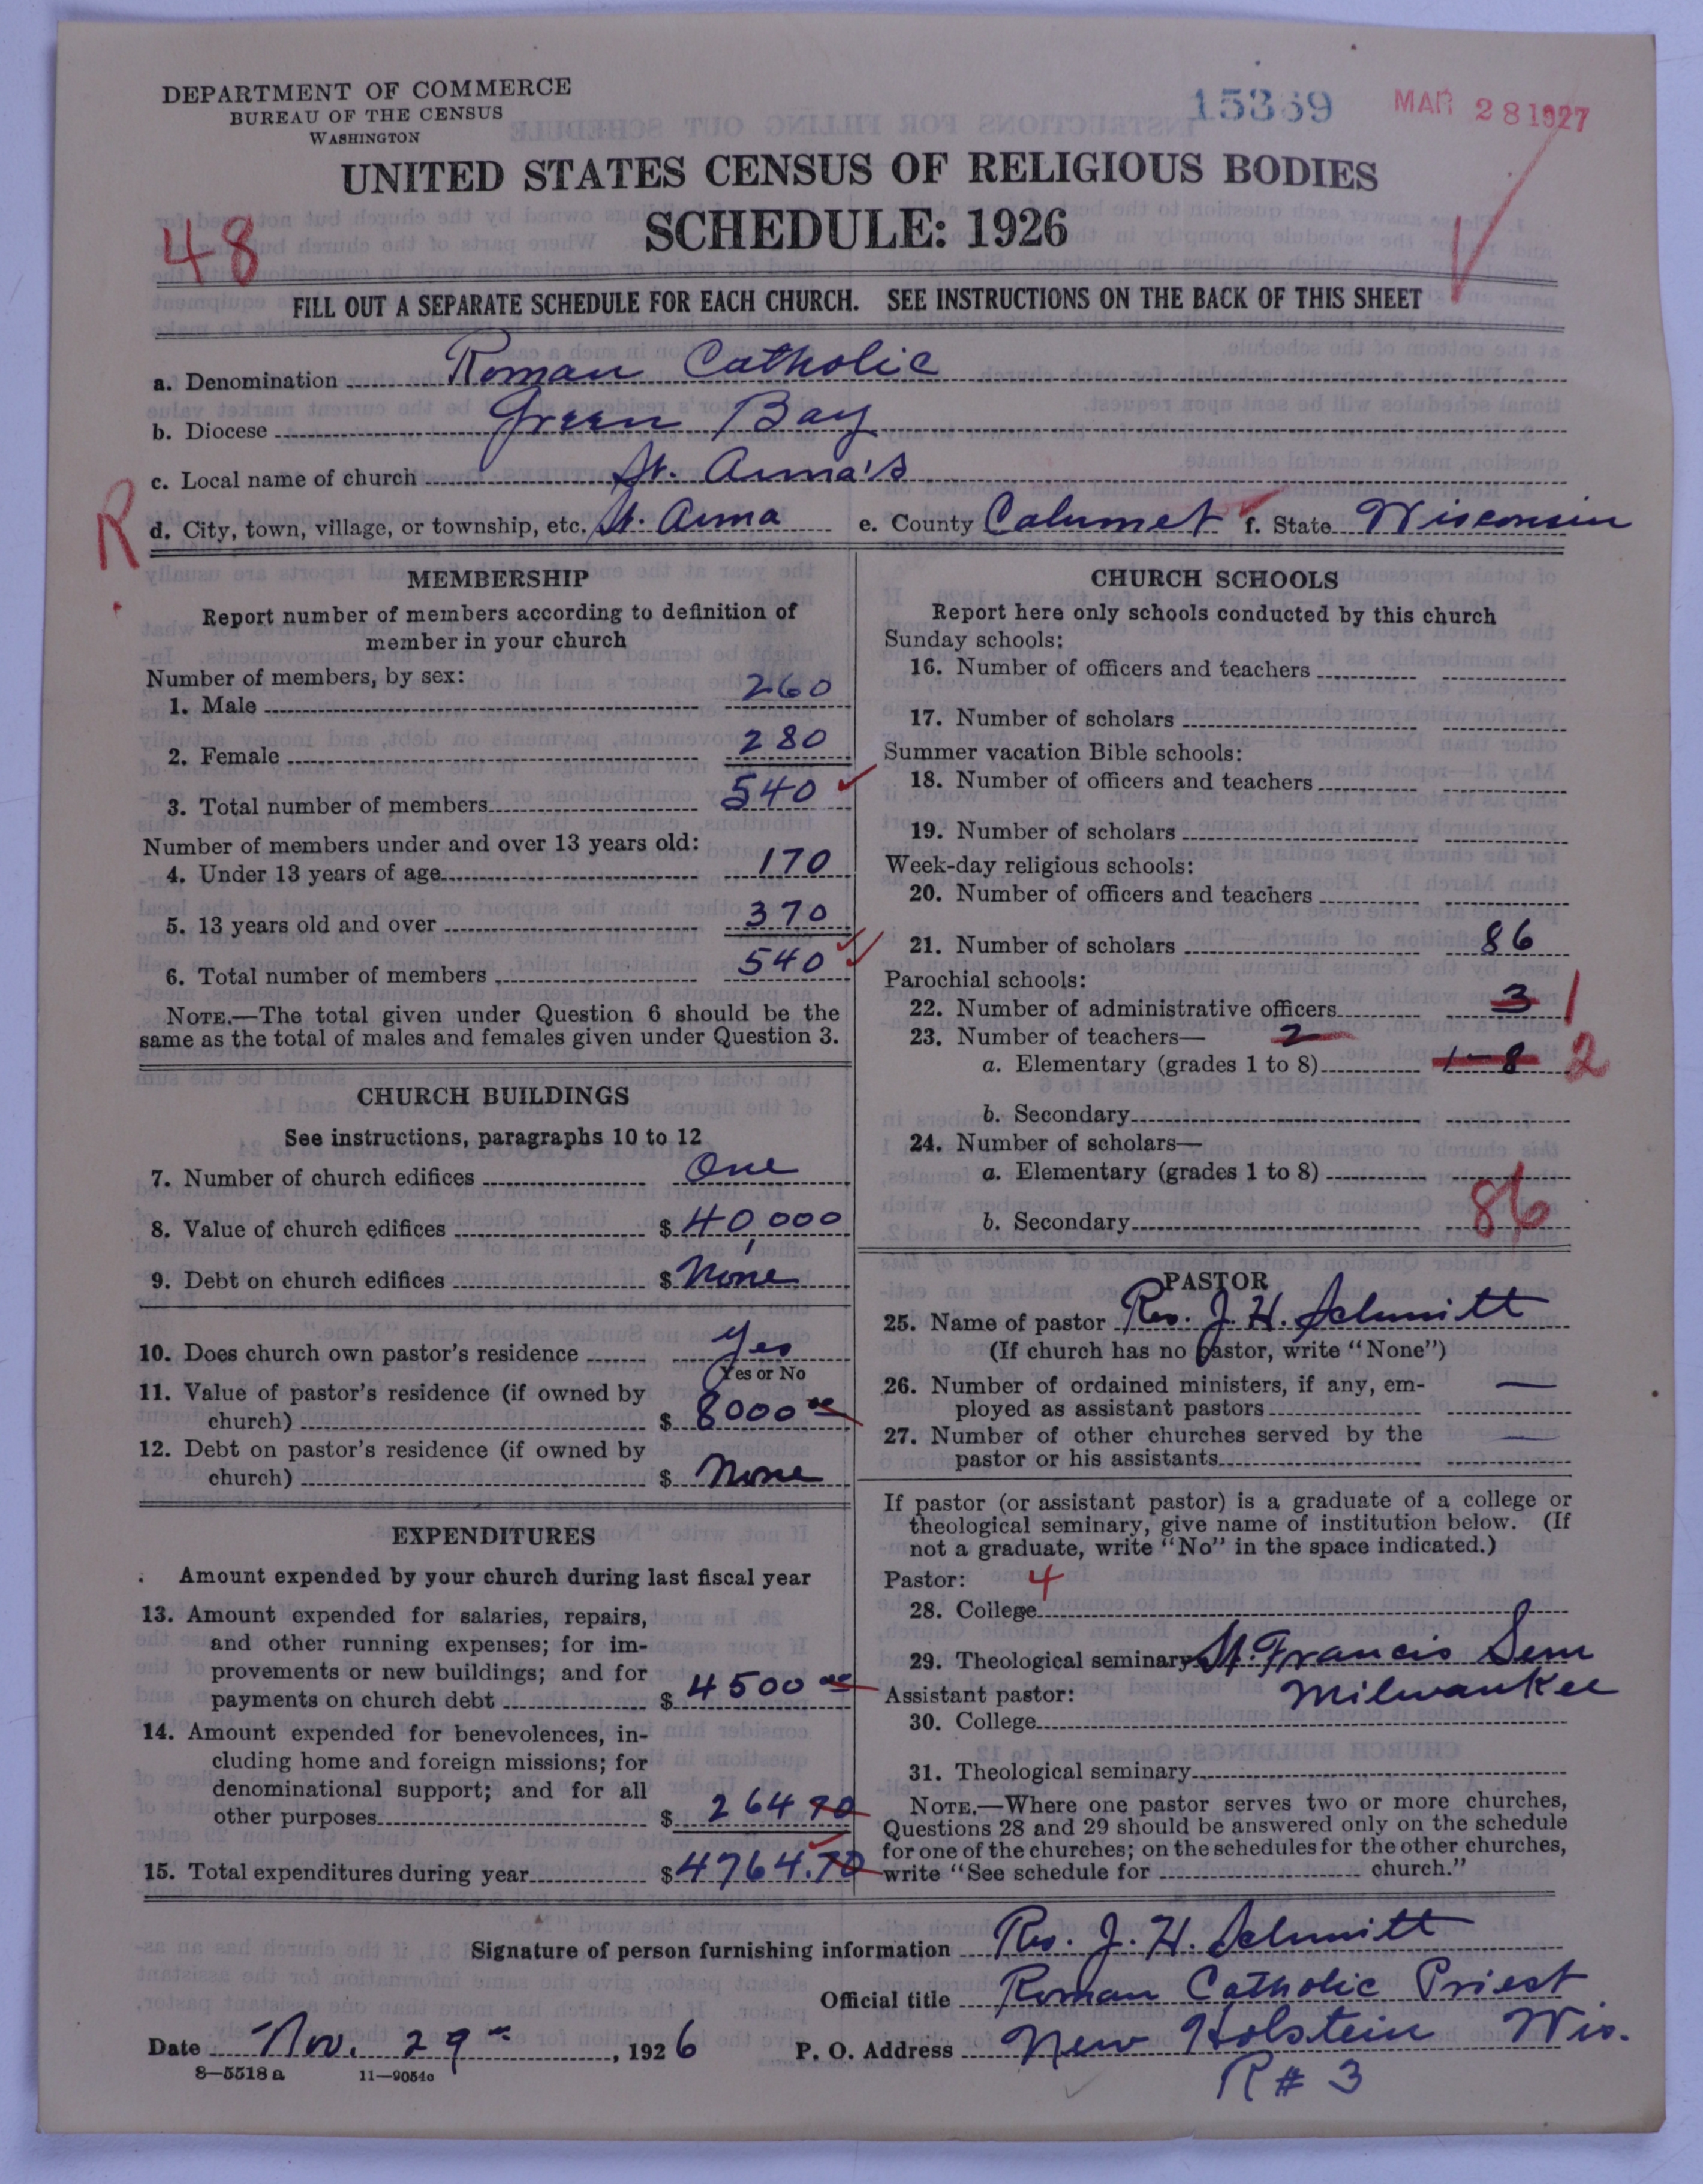 DEPARTMENT OF COMMERCE
BUREAU OF THE CENSUS
WASHINGTON
15369
MAR 28 1927
UNITED STATES CENSUS OF RELIGIOUS BODIES
SCHEDULE: 1926
48
FILL OUT A SEPARATE SCHEDULE FOR EACH CHURCH. SEE INSTRUCTIONS ON THE BACK OF THIS SHEET
a. Denomination Roman Catholic
b. Diocese Green Bay
c. Local name of church St. Anna's
R
d. City, town, village, or township, etc. St. Anna e. County Calumet f. State Wisconsin
MEMBERSHIP
Report number of members according to definition of
member in your church
Number of members, by sex:
1. Male 260
2. Female 280
3. Total number of members 540
Number of members under and over 13 years old:
4. Under 13 years of age 170
5. 13 years old and over 370
6. Total number of members 540
NOTE.—The total given under Question 6 should be the
same as the total of males and females given under Question 3.
CHURCH BUILDINGS
See instructions, paragraphs 10 to 12
7. Number of church edifices One
8. Value of church edifices $ 40,000
9. Debt on church edifices $ None
10. Does church own pastor's residence Yes
Yes or No
11. Value of pastor's residence (if owned by
church) $ 8000 00
12. Debt on pastor's residence (if owned by
church) $ None
EXPENDITURES
Amount expended by your church during last fiscal year
13. Amount expended for salaries, repairs,
and other running expenses; for im-
provements or new buildings; and for
payments on church debt $ 4500 00
14. Amount expended for benevolences, in-
cluding home and foreign missions; for
denominational support; and for all
other purposes $ 264 70
15. Total expenditures during year $ 4764.70
CHURCH SCHOOLS
Report here only schools conducted by this church
Sunday schools:
16. Number of officers and teachers
17. Number of scholars
Summer vacation Bible schools:
18. Number of officers and teachers
19. Number of scholars
Week-day religious schools:
20. Number of officers and teachers
21. Number of scholars 86
Parochial schools:
22. Number of administrative officers 3 1
23. Number of teachers— 2
a. Elementary (grades 1 to 8) 1-8 2
b. Secondary
24. Number of scholars—
a. Elementary (grades 1 to 8)
b. Secondary 86
PASTOR
25. Name of pastor Rev. J. H. Schmitt
(If church has no pastor, write "None")
26. Number of ordained ministers, if any, em- —
ployed as assistant pastors
27. Number of other churches served by the —
pastor or his assistants
If pastor (or assistant pastor) is a graduate of a college or
theological seminary, give name of institution below. (If
not a graduate, write "No" in the space indicated.)
Pastor: 4
28. College
29. Theological seminary St. Francis Sem
Assistant pastor: Milwaukee
30. College
31. Theological seminary
NOTE.—Where one pastor serves two or more churches,
Questions 28 and 29 should be answered only on the schedule
for one of the churches; on the schedules for the other churches,
write "See schedule for church."
Signature of person furnishing information Rev. J. H. Schmitt
Official title Roman Catholic Priest
Date Nov. 29, 1926 P. O. Address New Holstein Wis.
8—5518 a 11—9054a
R # 3